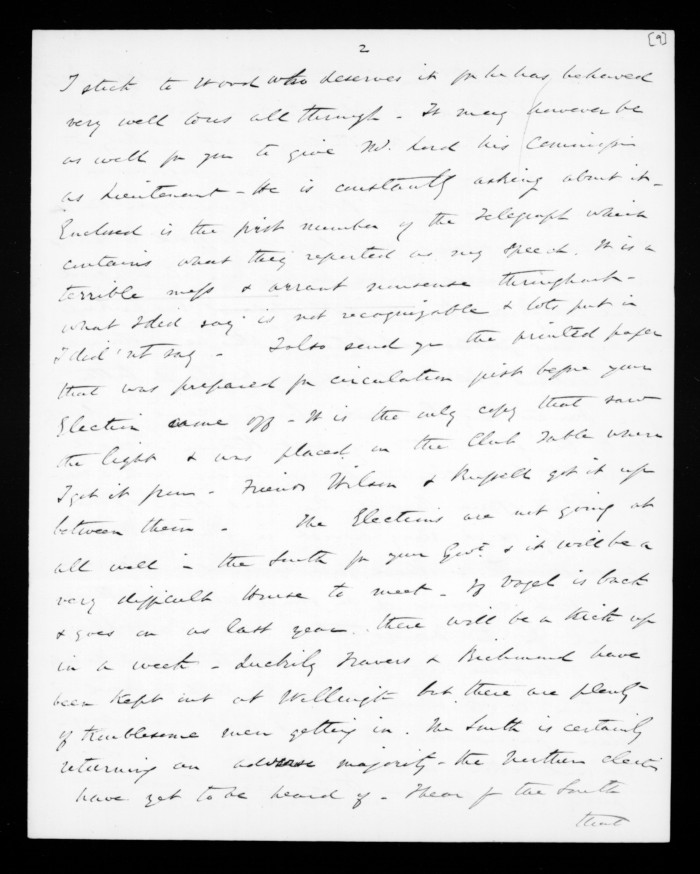 [9]
2
I stick to Wood who deserves it for he has behaved
very well to us all through - It may however be
as well for you to give Mr. Lord his Commission
as Lieutenant - He is constantly asking about it -
Enclosed is the first number of the Telegraph which
contains what they reported as my speech. It is a
terrible mess & arrant nonsense throughout -
what I did say is not recognizable & lots put in
I did'nt say - I also send you the printed paper
that was prepared for circulation just before your
Election came off - It is the only copy that saw
the light & was placed on the Club Table where
I got it from - Friends Wilson & Russell got it up
between them - The Elections are not going at
all well in the South for your Govt. & it will be a
very difficult House to meet - If Vogel is back
& goes on as last year there will be a kick up
in a week - Luckily Travers & Richmond have
been kept out at Wellingtn but there are plenty
of troublesome men getting in. The South is certainly
returning an adverse majority - the Northern electns
have yet to be heard of - I hear fr the South
that